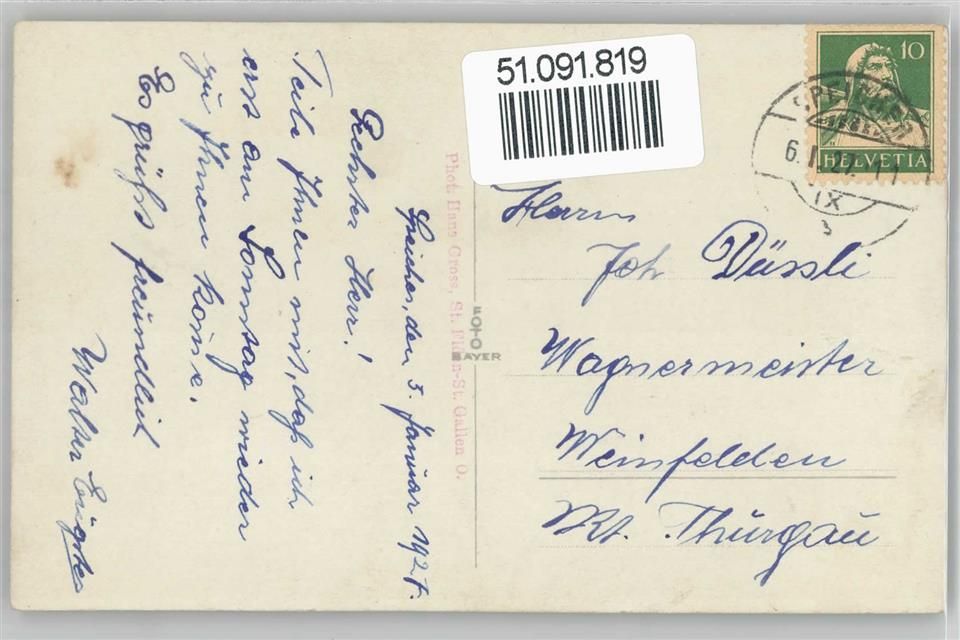 Speicher, den 5. Januar 1927.
Geehrter Herr!
Teile Ihnen mit, daß ich
erst am Sonntag wieder
zu Ihnen komme.
Es grüßt freundlich
Walter
Phot. Hans Gross, St. Fiden-St. Gallen O.
FOTO
BAYER
51.091.819
10
HELVETIA
6.I.27.
IX
Herrn
Joh. Düssli
Wagnermeister
Weinfelden
Kt. Thurgau